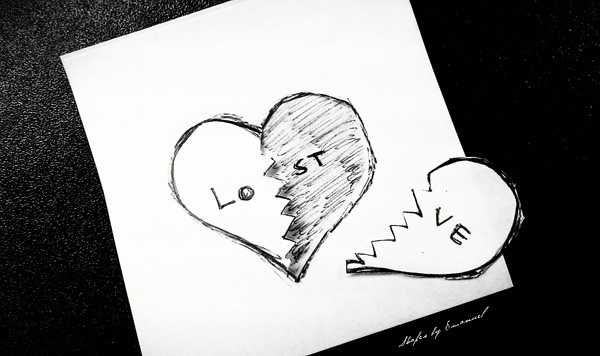 LO ST
VE
Shapes by Emanuel